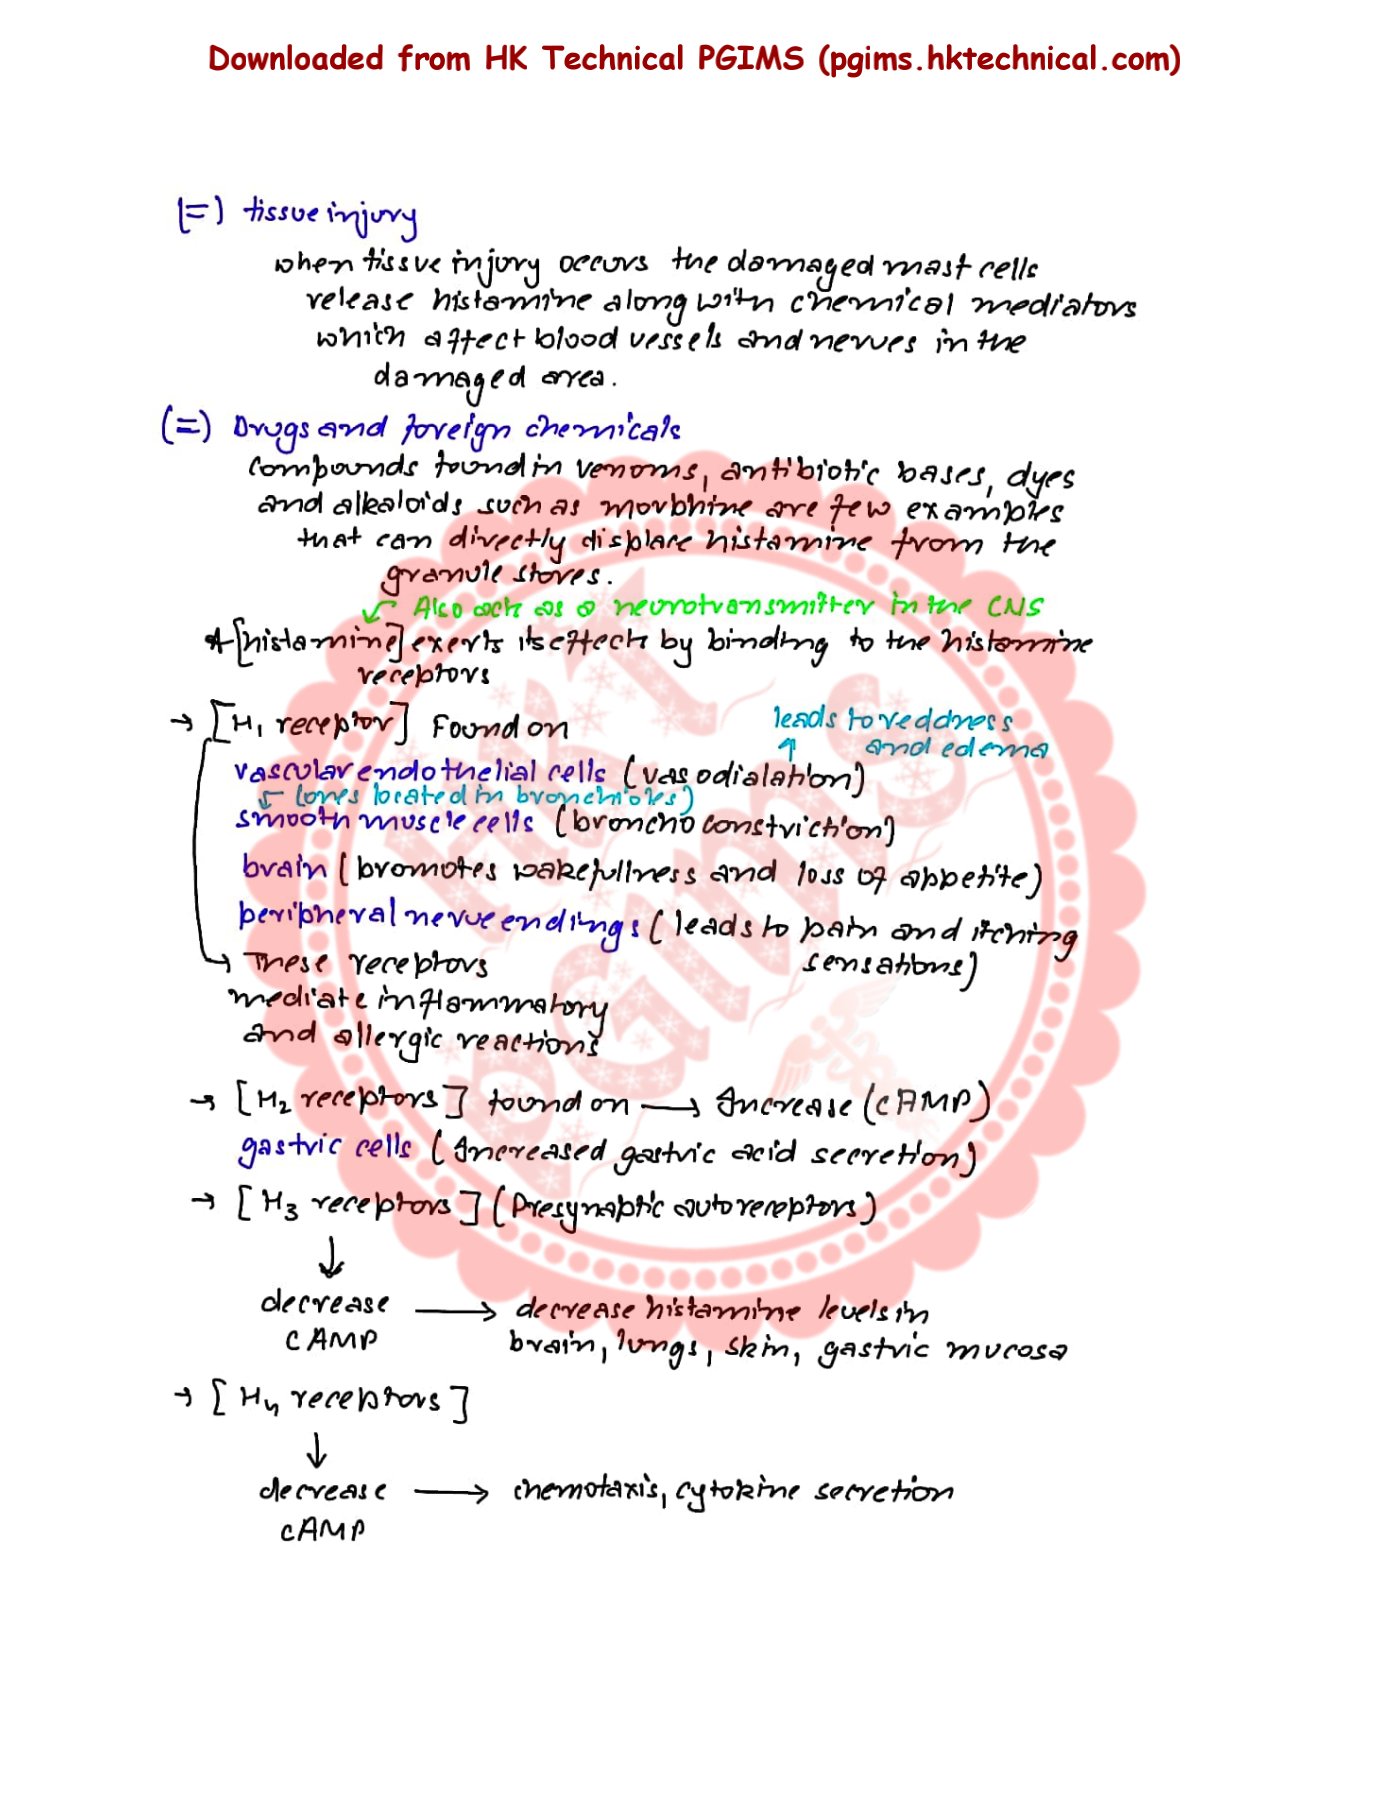 Downloaded from HK Technical PGIMS (pgims.hktechnical.com)
(=) tissue injury
when tissue injury occurs the damaged mast cells
release histamine along with chemical mediators
which affect blood vessels and nerves in the
damaged area.
(=) Drugs and foreign chemicals
compounds found in venoms, antibiotic bases, dyes
and alkaloids such as morphine are few examples
that can directly displace histamine from the
granule stores.
↙ Also acts as a neurotransmitter in the CNS
* [histamine] exerts its effects by binding to the histamine
receptors
→ [H₁ receptor] Found on
leads to reddness
and edema
vascular endothelial cells (vasodialation)
↙ (ones located in bronchioles)
smooth muscle cells (bronchoconstriction)
brain (promotes wakefullness and loss of appetite)
peripheral nerve endings (leads to pain and itching
sensations)
→ These receptors
mediate inflammatory
and allergic reactions
→ [H₂ receptors] found on → Increase (cAMP)
gastric cells (Increased gastric acid secretion)
→ [H₃ receptors] (Presynaptic autoreceptors)
↓
decrease → decrease histamine levels in
cAMP brain, lungs, skin, gastric mucosa
→ [H₄ receptors]
↓
decrease → chemotaxis, cytokine secretion
cAMP
HKT
PGIMS